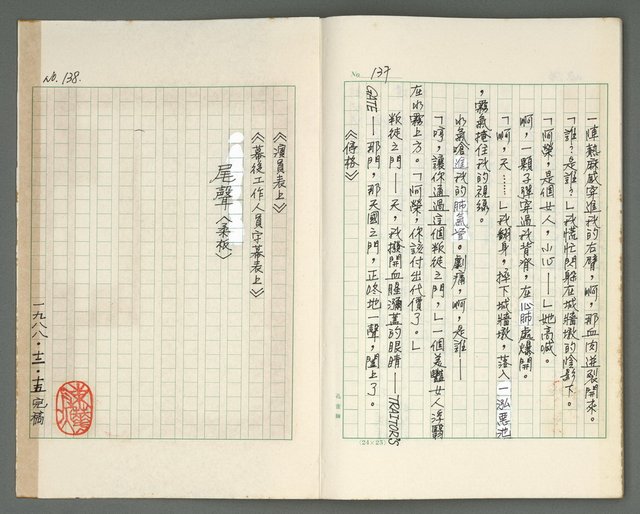 No. 137
一陣熱麻感穿進我的右臂，啊，那血肉迸裂開來。
「誰？是誰？」我慌忙閃躲在城牆墩的陰影下。
「阿榮，是個女人，小心——」她高喊。
啊，一顆子彈穿過我背脊，在心肺處爆開。
「啊，天……」我翻身，摔下城牆墩，落入一泓惡池
，霧氣掩住我的視線。
水氣嗆進我的肺氣管。劇痛，啊，是誰——
「哼，讓你通過這個叛徒之門，」一個美豔女人浮翳
在水霧上方。「阿榮，你該付出代價了。」
叛徒之門——天，我撥開血腥瀰蓋的眼睛——TRAITOR'S
GATE——那門，那天國之門，正咚地一聲，闔上了。
《停格》
(24×25)
No. 138.
《演員表上》
《幕後工作人員字幕表上》
尾聲〈柔板〉
一九八八・十二・十五完稿